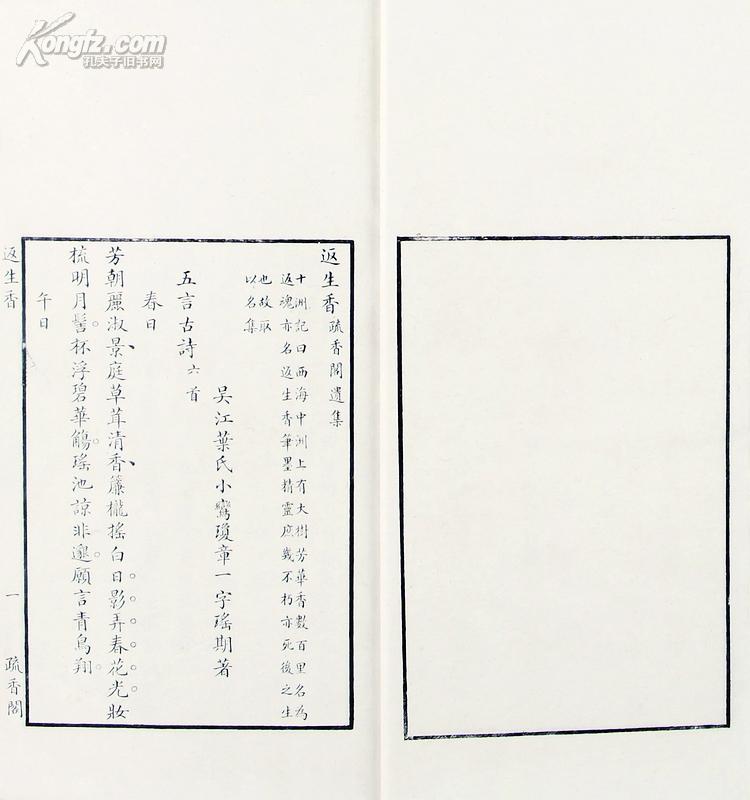 Kongfz.com
孔夫子旧书网
返生香 疏香閣遺集
十洲記曰西海中洲上有大樹芳華香數百里名為
返魂亦名返生香筆墨精靈庶幾不朽亦死後之生
也故取
以名集
吳江葉氏小鸞瓊章一字瑤期著
五言古詩 六首
春日
芳朝麗淑景庭草茸清香簾櫳搖白日影弄春花光妝
梳明月髻杯浮碧華觴瑤池諒非邈願言青鳥翔
午日
返生香 一 疏香閣